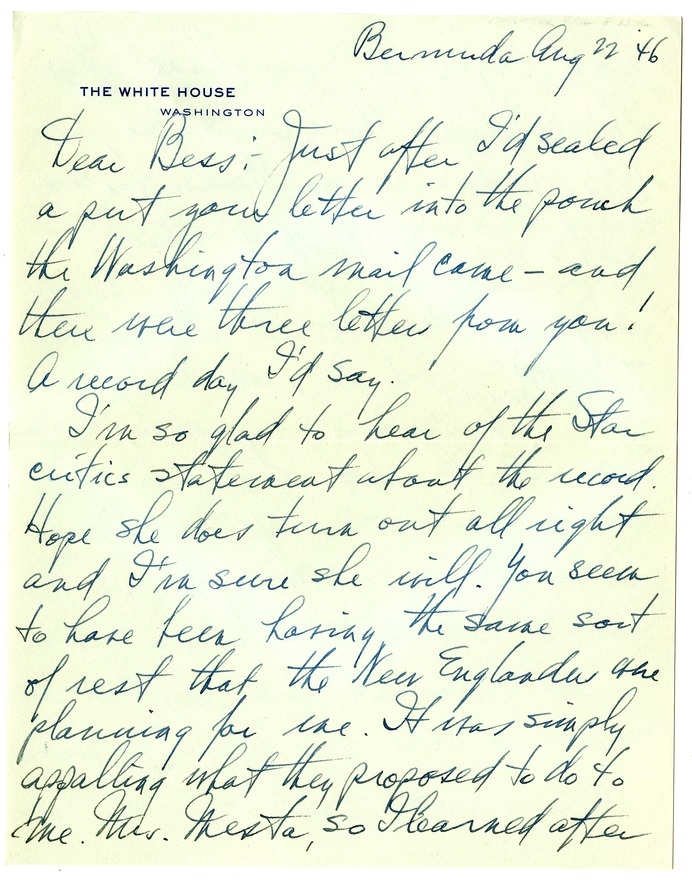 Bermuda Aug 22 '46
THE WHITE HOUSE
WASHINGTON
Dear Bess:- Just after I'd sealed
a put your letter into the pouch
the Washington mail came - and
there were three letters from you!
A record day I'd say.
I'm so glad to hear of the Star
critics statement about the record.
Hope she does turn out all right
and I'm sure she will. You seem
to have been having the same sort
of rest that the New Englanders were
planning for me. It was simply
appalling what they proposed to do to
me. Mrs. Mesta, so I learned after